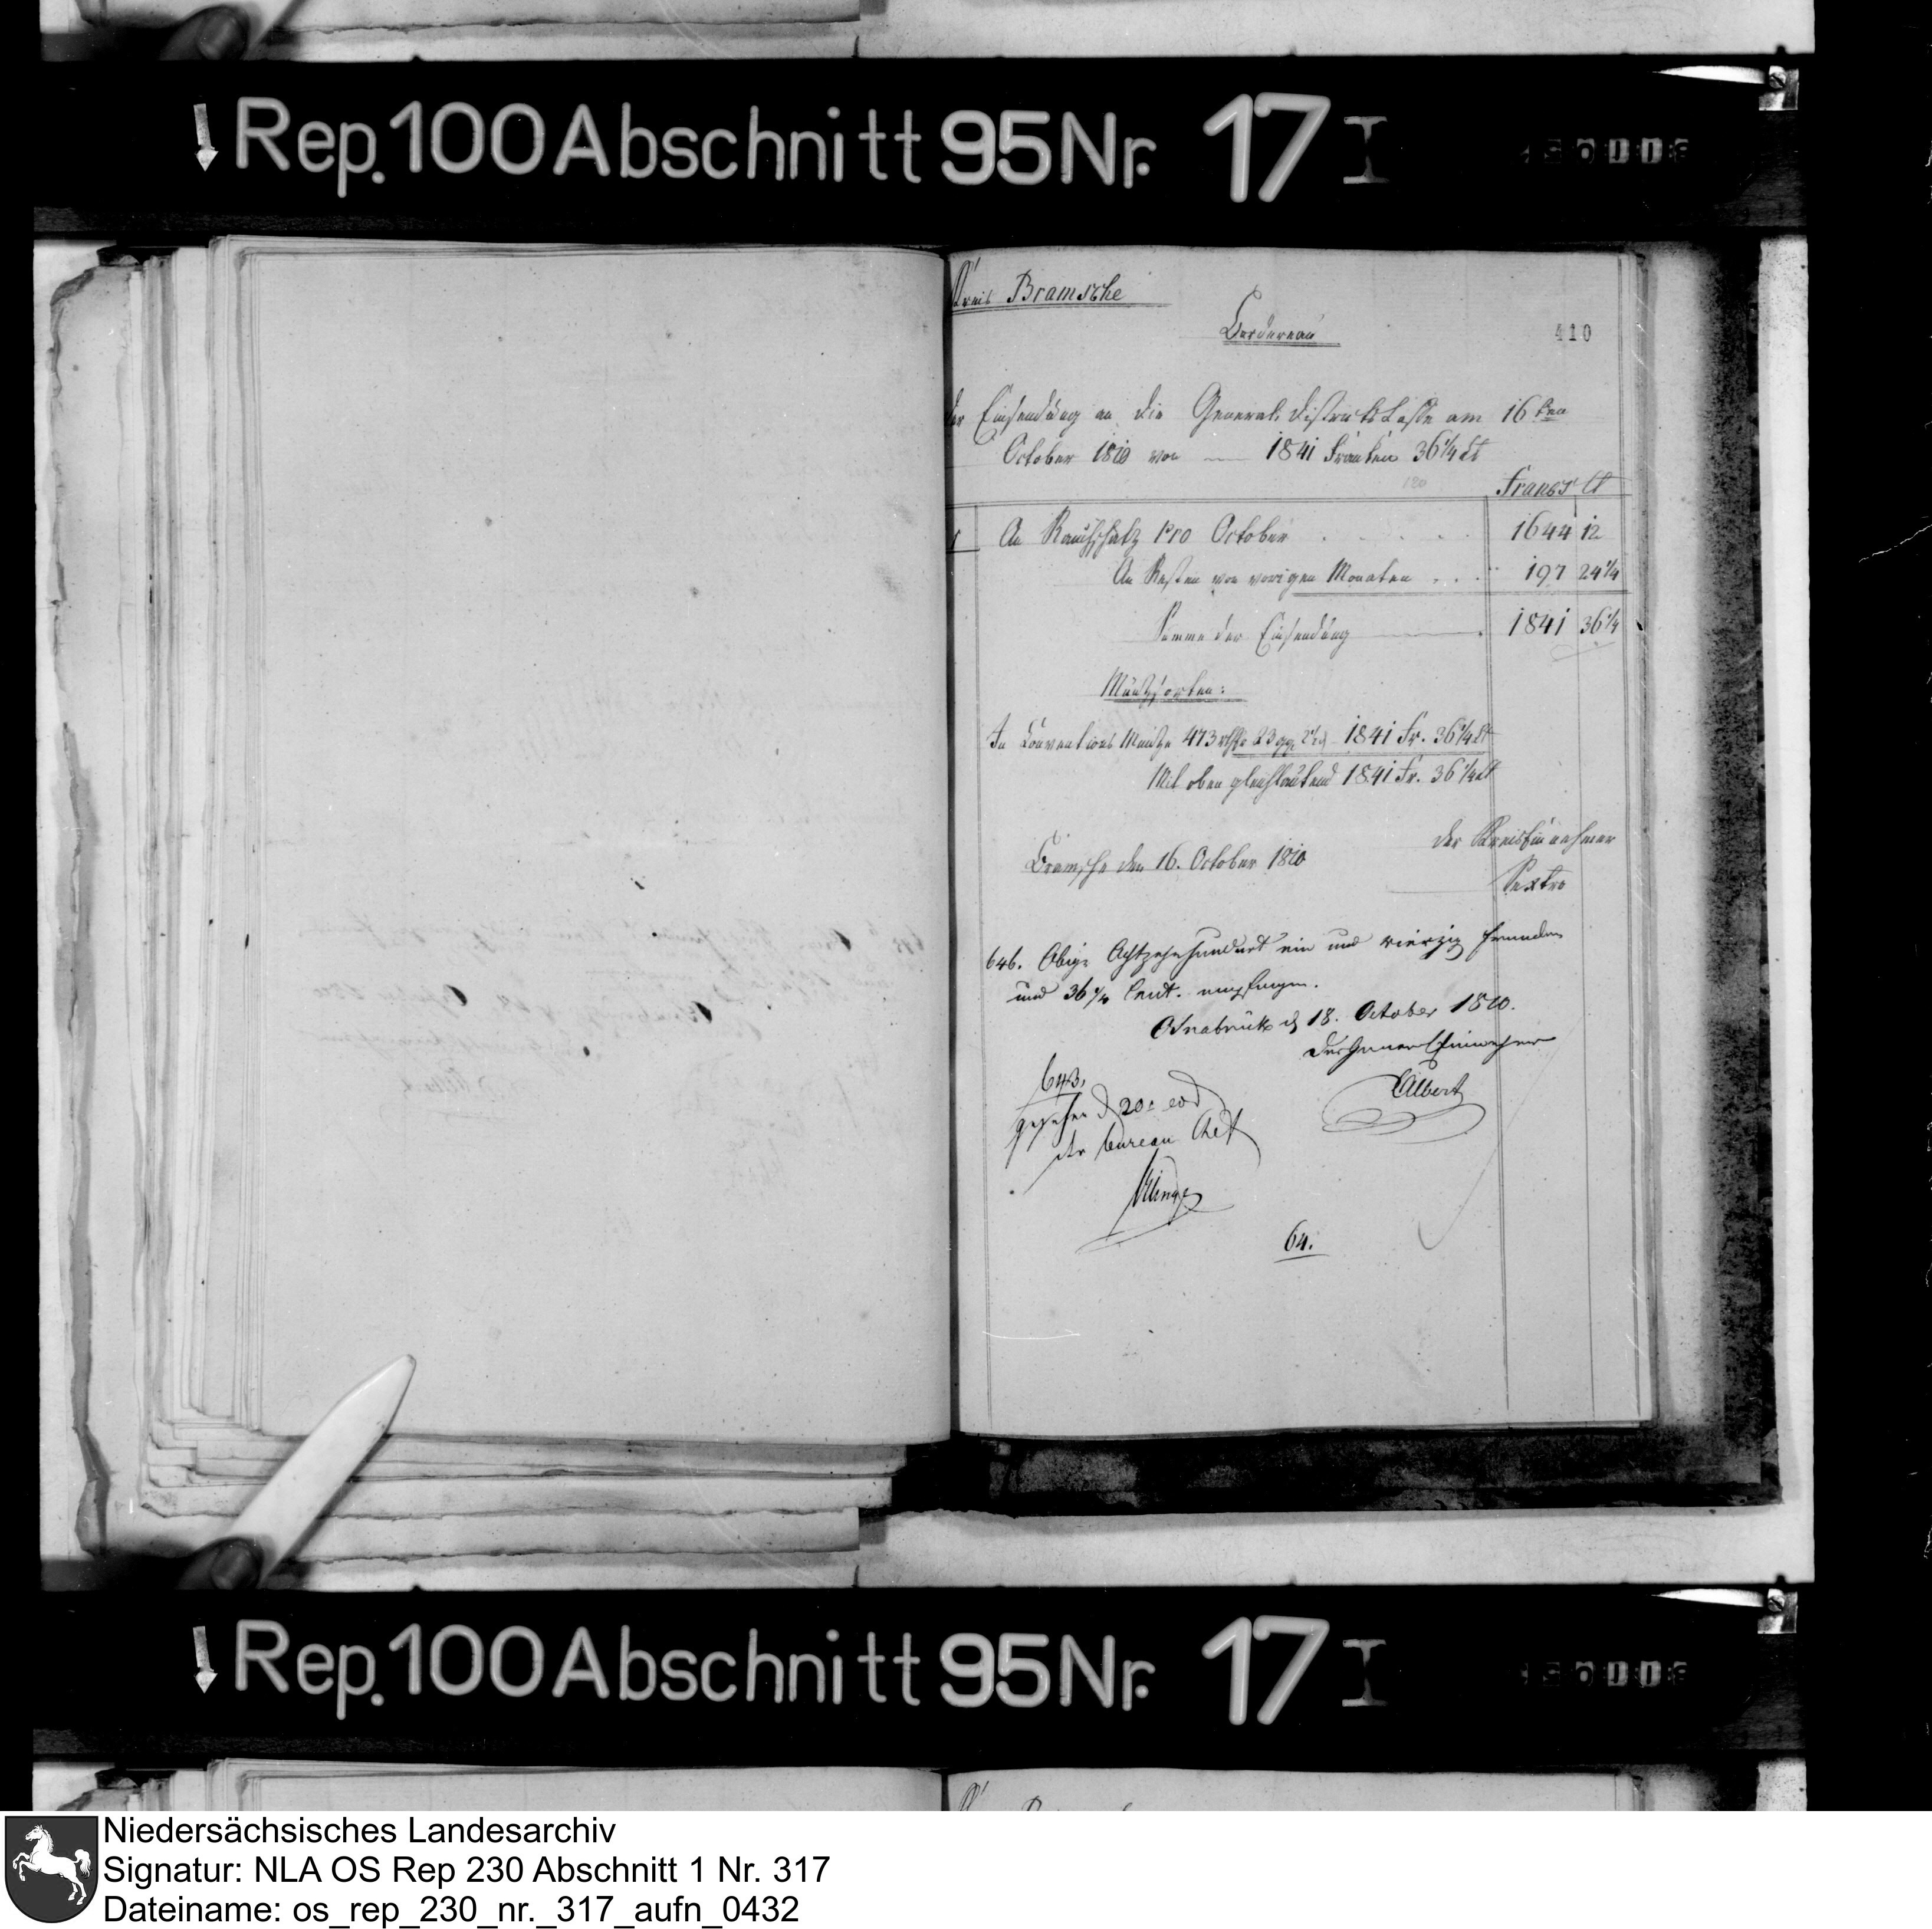 Rep. 100 Abschnitt 95 Nr. 17 I
Kreis Bramsche
Bordereau
410
der Einsendung an die General Districts Casse am 16ten
October 1810 von 1841 Franken 36 1/4 Ct
Francs Ct
1 An Rauchschatz pro October 1644 12
An Resten von vorigen Monaten 197 24 1/4
Summe der Einsendung 1841 36 1/4
Müntzsorten:
In Conventions Müntze 473 rthlr 23 ggr 1841 Fr. 36 1/4 Ct
Mit oben gleichlautend 1841 Fr. 36 1/4 Ct
Bramsche den 16. October 1810
der Kreiseinnehmer
Sextro
646. Obige Achtzehnhundert ein und vierzig Franken
und 36 1/4 Cent. empfangen.
Osnabrück d 18. October 1810.
Der General Einnehmer
Albert
643.
gesehen d 20t eod
der bureau Chef
64.
Rep. 100 Abschnitt 95 Nr. 17 I
Niedersächsisches Landesarchiv
Signatur: NLA OS Rep 230 Abschnitt 1 Nr. 317
Dateiname: os_rep_230_nr._317_aufn_0432